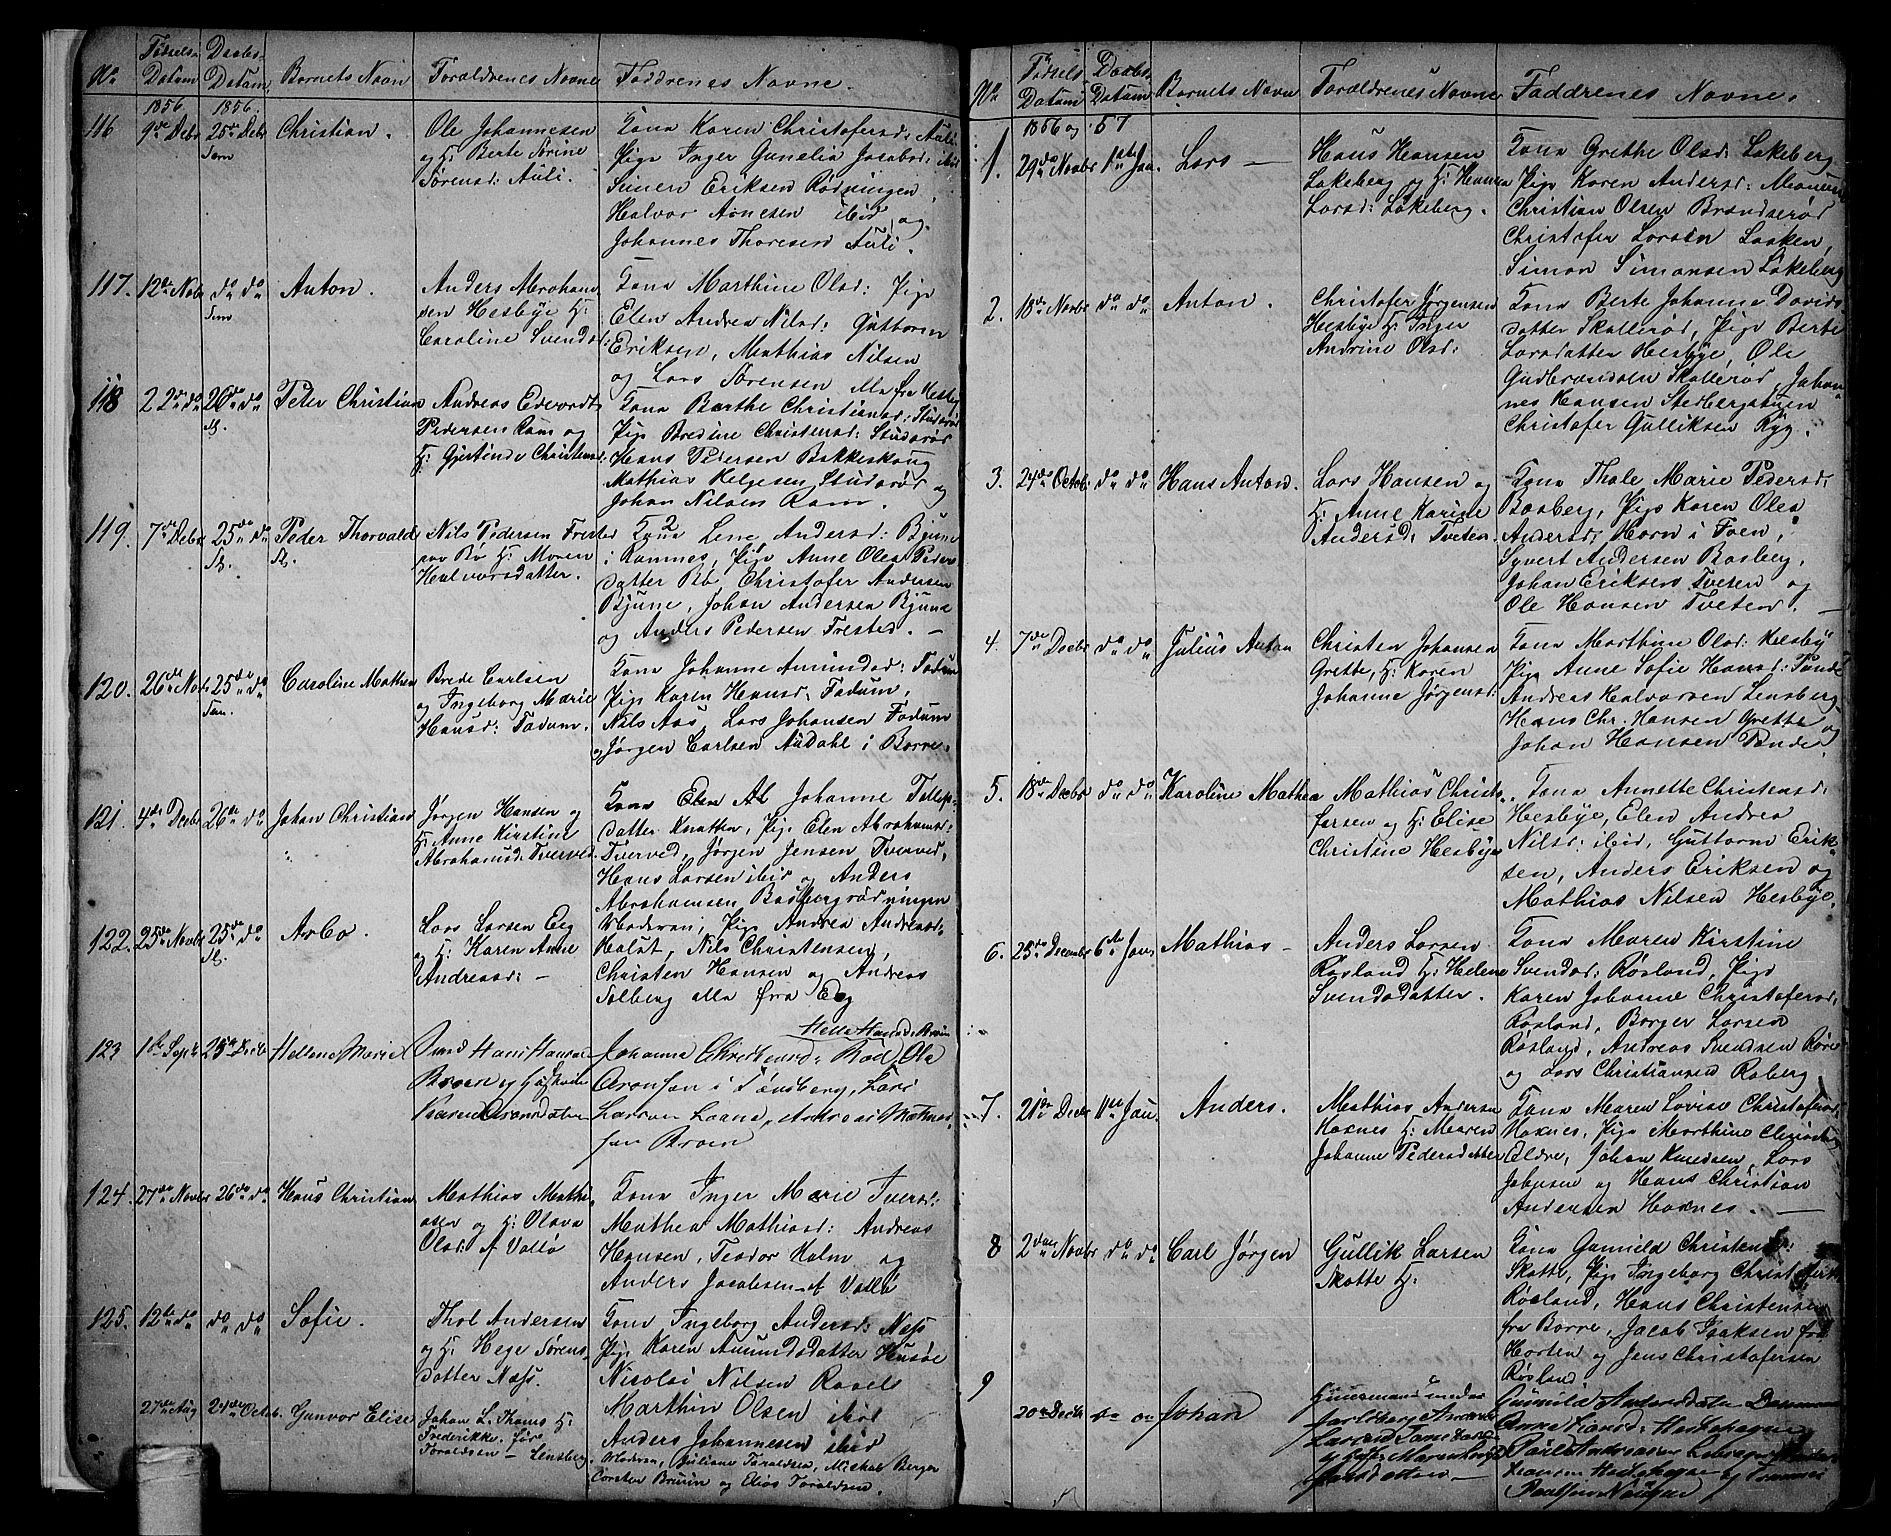 No Fødsels Datum Daabs Datum Barnets Navn Forældrenes Navne Faddrenes Navne.
1856 1856.
116 9de Debr 25de Debr Sem Christian. Ole Johannesen
og H: Berte Sørine
Sørensd: Auli.
Kona Karen Christofersd: Auli
Pige Inger Gunelia Jacobsd: ibid
Simen Eriksen Rødningen
Halvor Aønesen ibid og
Johannes Thoresen Auli.
117. 12te Novbr do do Sem Anton. Anders Abraham
sen Hesbye H:
Caroline Svendsd:
Kona Marthine Olsd: Pige
Elen Andrea Nilsd: Guttorm
Eriksen, Mathias Nilsen
og Lars Sørensen alle fra Hesby
118 22de do 26de do Sl. Peter Christian Andreas Edevardt
Pedersen Ram og
H: Gjertinde Christensd:
Kona Berthe Christiansd: Studsrød
Pige Bredine Christensd: Studsrød
Hans Pedersen Bakkeskaug
Mathias Helgesen Studsrød og
Johan Nilsen Ram.
119. 7de Debr 25de do Sl. Peder Thorvald Sl. Nils Pedersen Frested
paa Bø H: Maren
Halvorsdatter.
Kona Lene Andersd: Bjune
i Ramnes, Pige Anne Olea Peders
datter Bø Christofer Andersen
Bjune, Johan Andersen Bjune
og Anders Pedersen Frested. —
120. 26de Novbr 25de do Sem. Caroline Mathea Brede Carlsen
og Ingeborg Marie
Hansd: Fadum.
Kona Johanne Amundsd: Fadum
Pige Karen Hansd: Fadum,
Nils Aas, Lars Johansen Fadum
og Jørgen Carlsen Audahl i Borre.
121. 4de Debr 26de do Johan Christian Jørgen Hansen og
H: Anne Kirstine
Abrahamsd: Tverved.
Kona Elen Al Johanne Tollefs-
datter Knatten, Pige Elen Abrahamsd:
Tverved, Jørgen Jensen Tverved,
Hans Larsen ibid og Anders
Abrahamsen Basbergrødningen
122. 25de Novbr 25de do Sl. Arbo Lars Larsen Eeg
og H: Karen Anne
Andreasd: —
Moderen, Pige Andrea Andreasd:
Holdt, Nils Christensen,
Christen Hansen og Andreas
Solberg alle fra Eeg
123 1ste Septb 25de Decbr Hellene Marie Hans Hansen
Broen og Hustrue
Karen Aronsdatter
Helle Hansd: Broen
Johanna Christensd: Roe, Ole
Aronsen i Tønsberg, Lars
Larsen Laane, Andreas Mathias-
sen Broen
124. 27de Novbr 26de do Hans Christian Mathias Mathi-
asen og H: Olava
Olsd: af Vallø
Kona Inger Marie Iversd:
Mathea Mathiasd: Andreas
Hansen, Teodor Holm og
Anders Jacobsen af Vallø
125. 12te do do do Sofie. Thol Andersen
og H: Hege Sørens-
datter Næss.
Kona Ingeborg Andersd: Næss
Pige Karen Amundsdatter Husøe
Nicolai Nilsen Ravels
Marthin Olsen ibid
Anders Johannesen ibid
27de Aug 24de Octob. Gunvor Elise Johan L. Thams H:
Frederikke før
Toraldsen — Lensberg
Moderen, Juliane Toraldsen, Michal Berger
Corsten Bruun og Elias Toraldsen.
No Fødsels Datum Daabs Datum Barnets Navn Forældrenes Navne Faddrenes Navne.
1856 og 57
1. 29de Novbr 1ste Jan. Lars — Hans Hansen
Løkeberg og H: Hansen
Larsd: Løkeberg.
Kona Grethe Olsd: Løkeberg
Pige Karen Andersd:
Christian Olsen Brændserød
Christofer Larsen Løeken,
Simon Simonsen Løkeberg
2. 18de Novbr do do Anton. Christofer Jørgensen
Hesbye H: Inger
Andrine Olsd:
Kona Berte Johanne Davids-
datter Skallerød, Pige Berte
Larsdatter Hesbye, Ole
Gudbrandsen Skallerød, Johan-
nes Hansen Stedbergstuen
Christofer Gulliksen Ryg.
3. 24de Octob: do do Hans Anton. Lars Hansen og
H: Anne Karine
Andersd: Tveten.
Kona Thale Marie Pedersd:
Basberg, Pige Karen Olea
Andersd: Horn i Foen,
Syvert Andersen Basberg,
Johan Eriksen Tveten og
Ole Hansen Tveten. —
4. 7de Decbr do do Julius Anton Christen Johansen
Grette, H: Karen
Johanne Jørgensd:
Kona Marthine Olsd: Hesby
Pige Anne Sofie Hansd: Pande
Andreas Halvorsen Lensberg
Hans Chr. Hansen Grette og
Johan Hansen Pande.
5. 18de Decbr do do Karoline Mathea Mathias Christo-
fersen og H: Elise
Christine Hesbye
Kona Annette Christensd:
Hesbye, Elen Andrea
Nilsd: ibid, Guttorm Erik-
sen, Anders Eriksen og
Mathias Nilsen Hesbye.
6. 25de December 6te Jan. Mathias — Anders Larsen
Røsland H: Helene
Svendsdatter.
Kona Maren Kirstine
Svendsd: Røsland, Pige
Karen Johanne Christofersd:
Røsland, Borger Larsen
Røsland, Andreas Svendsen Røre
og Lars Christiansen Roberg
7. 21de Decbr 11te Jan. Anders. Mathias Andersen
Haxnes H: Maren
Johanne Pedersdatter
Kona Maren Lovise Christofersd:
Haxnes, Pige Marthine Christensd:
Oldre, Johan Knudsen, Lars
Jobsen og Hans Christian
Andersen Haxnes. —
8 2den Novbr do do Carl Jørgen Gullik Larsen
Skotte H:
Kona Gunild Christensd:
Skotte, Pige Ingeborg
Røsland, Hans Christensen
fra Borre, Jacob Isaksen fra
Horten og Jens Christofersen
Røsland
9 20de Decbr do do Johan Huusmand under
Jarlsberg
og Maren
Gunild Andersdatter
Paul Andreassen
og